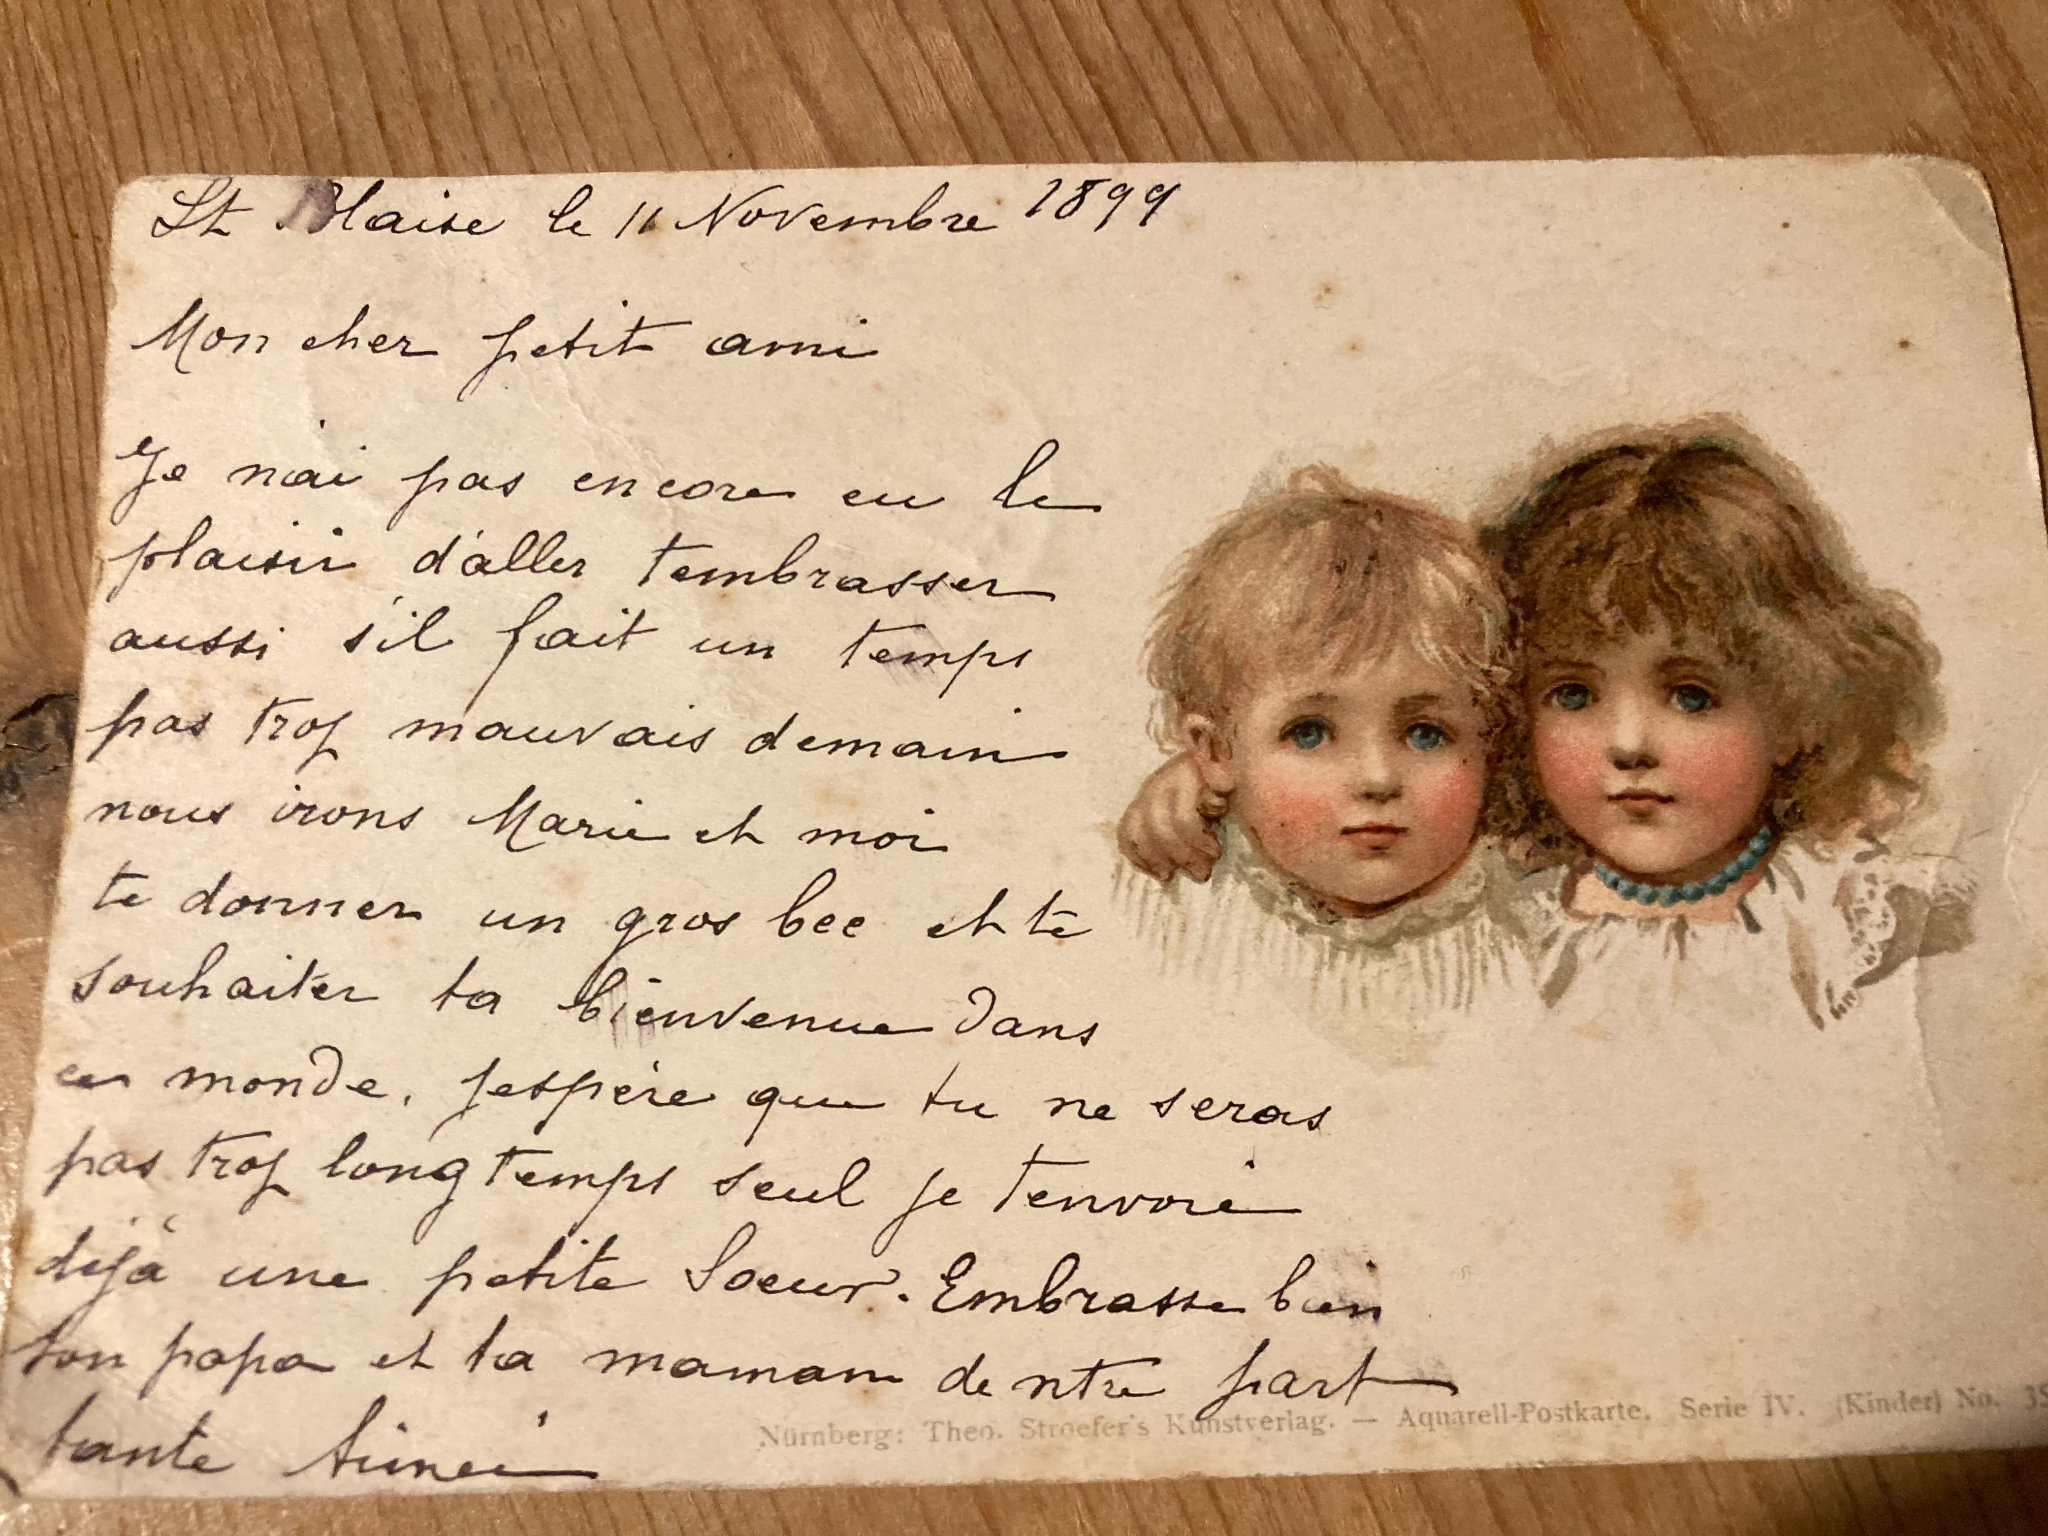 St Blaise le 11 Novembre 1899
Mon cher petit ami
Je n'ai pas encore eu le
plaisir d'aller t'embrasser
aussi s'il fait un temps
pas trop mauvais demain
nous irons Marie et moi
te donner un gros bec et te
souhaiter la bienvenue dans
ce monde. J'espère que tu ne seras
pas trop longtemps seul je t'envoie
déjà une petite soeur. Embrasse bien
ton papa et ta maman de ntre part
tante Aimée
Nürnberg: Theo. Stroefer's Kunstverlag. — Aquarell-Postkarte. Serie IV. (Kinder) No.